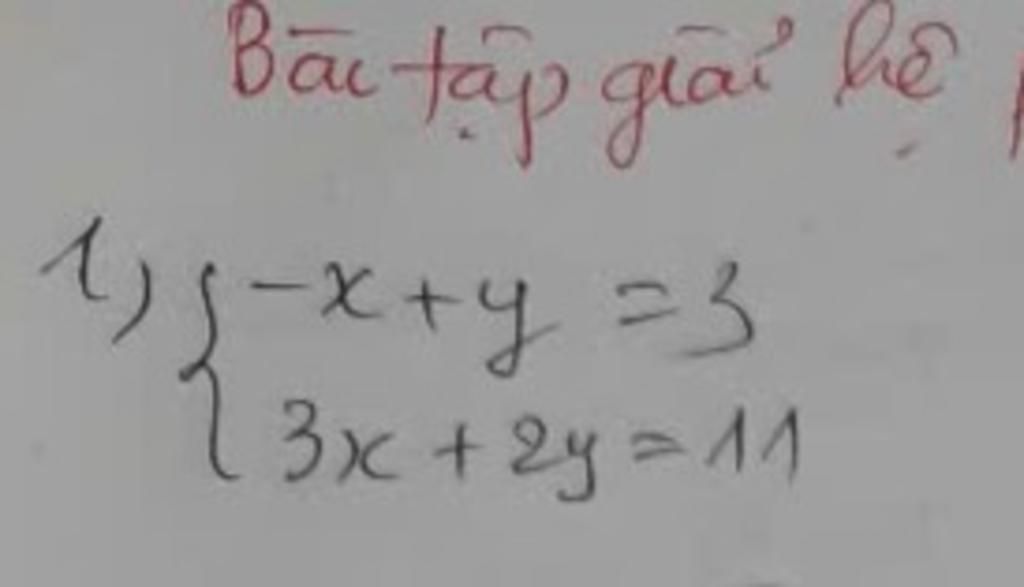 Bài tập giải hệ
1) { -x + y = 3
3x + 2y = 11